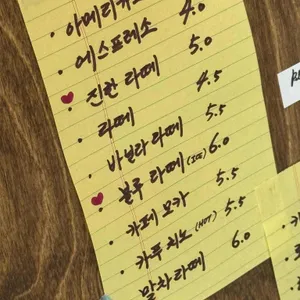 · 아메리
· 에스프레소 4.0
· 진한 라떼 5.0
· 라떼 4.5
· 바닐라 라떼 5.5
· 블루 라떼 (ICE) 6.0
· 카페 모카 5.5
· 카푸치노 (HOT) 5.5
· 말차라떼 6.0